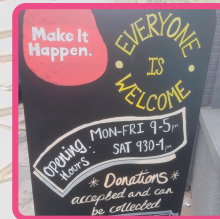 Make It
Happen.
EVERYONE
IS
WELCOME
Opening
Hours:
MON-FRI 9-5pm
SAT 930-4pm
* Donations *
accepted and can
be collected